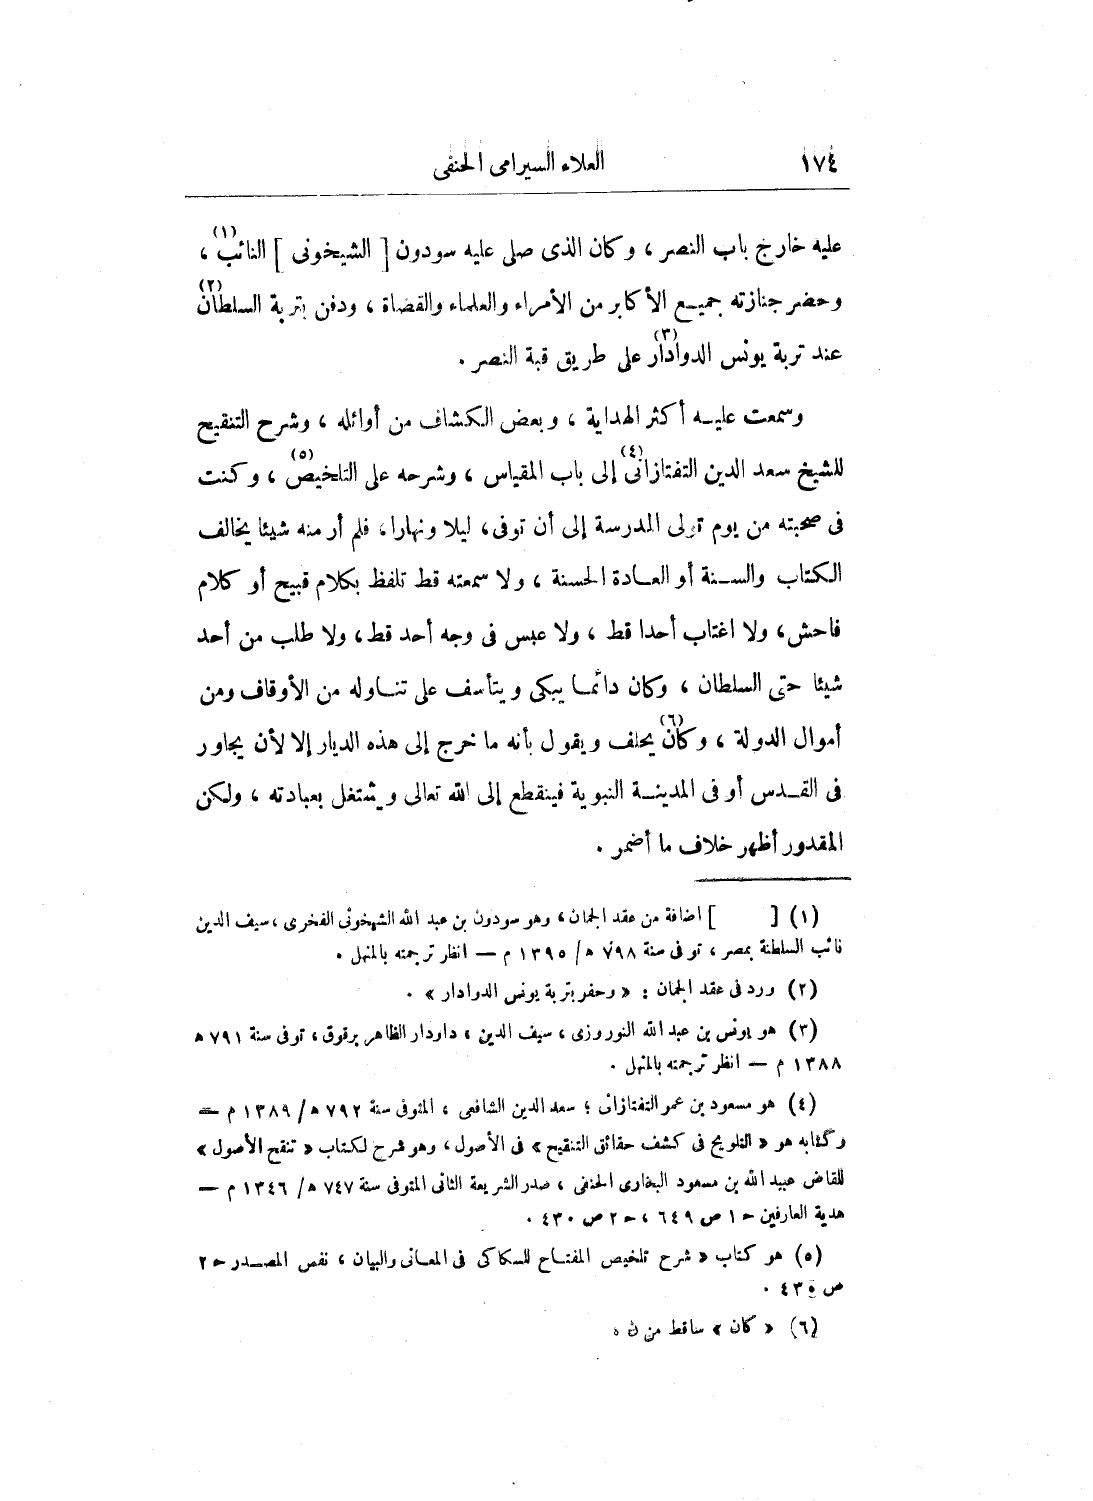 ١٧٤ العلاء السيرامى الحنفى
عليه خارج باب النصر ، وكان الذى صلى عليه سودون [ الشيخونى ] النائب (١) ،
وحضر جنازته جميع الأكابر من الأمراء والعلماء والقضاة ، ودفن بتربة السلطان (٢)
عند تربة يونس الدوادار (٣) على طريق قبة النصر .
وسمعت عليه أكثر الهداية ، وبعض الكشاف من أوائله ، وشرح التنقيح
للشيخ سعد الدين التفتازانى (٤) إلى باب المقياس ، وشرحه على التلخيص (٥) ، وكنت
فى صحبته من يوم تولى المدرسة إلى أن توفى ، ليلا ونهارا ، فلم أر منه شيئا يخالف
الكتاب والسنة أو العادة الحسنة ، ولا سمعته قط تلفظ بكلام قبيح أو كلام
فاحش ، ولا اغتاب أحدا قط ، ولا عبس فى وجه أحد قط ، ولا طلب من أحد
شيئا حتى السلطان ، وكان دائما يبكى ويتأسف على تناوله من الأوقاف ومن
أموال الدولة ، وكان (٦) يحلف ويقول بأنه ما خرج إلى هذه الديار إلا لأن يجاور
فى القدس أو فى المدينة النبوية فينقطع إلى الله تعالى ويشتغل بعبادته ، ولكن
المقدور أظهر خلاف ما أضمر .
(١) [ ] اضافة من عقد الجمان ، وهو سودون بن عبد الله الشيخونى الفخرى ، سيف الدين
نائب السلطنة بمصر ، توفى سنة ٧٩٨ ه/ ١٣٩٥ م — انظر ترجمته بالمنهل .
(٢) ورد فى عقد الجمان : « وحفر بتربة يونس الدوادار » .
(٣) هو يونس بن عبد الله النوروزى ، سيف الدين ، داودار الظاهر برقوق ، توفى سنة ٧٩١ ه
١٣٨٨ م — انظر ترجمته بالمنهل .
(٤) هو مسعود بن عمر التفتازانى ؛ سعد الدين الشافعى ، المتوفى سنة ٧٩٢ ه/ ١٣٨٩ م —
وكتابه هو « التلويح فى كشف حقائق التنقيح » فى الأصول ، وهو شرح لكتاب « تنقح الأصول »
للقاض عبيد الله بن مسعود البخارى الحنفى ، صدر الشريعة الثانى المتوفى سنة ٧٤٧ ه/ ١٣٤٦ م —
هدية العارفين ح ١ ص ٦٤٩ ، ح ٢ ص ٤٣٠ .
(٥) هو كتاب « شرح تلخيص المفتاح للسكاكى فى المعانى والبيان ، نفس المصدر ح ٢
ص ٤٣٠ .
(٦) « كان » ساقط من ن .